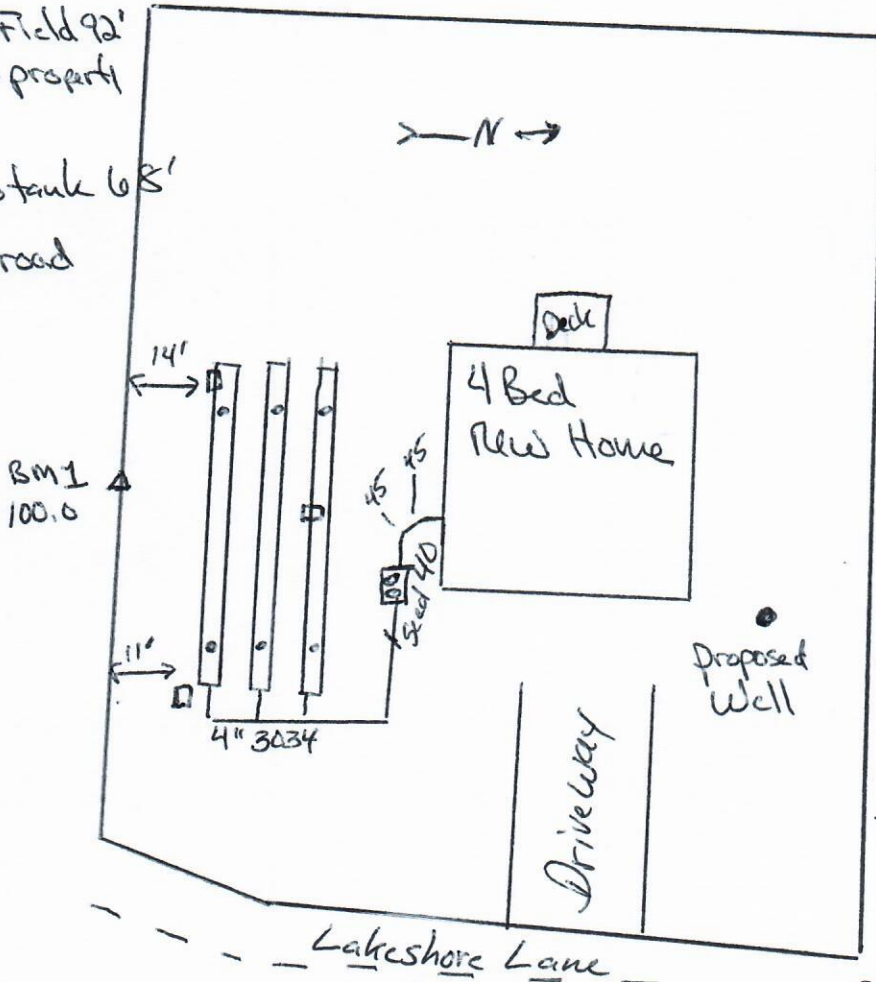 Field 92'
property
tank 68'
road
N
Deck
14'
4 Bed
New Home
BM1
100.0
45
45
Sced 40
11'
Proposed
Well
4" 3034
Driveway
Lakeshore Lane